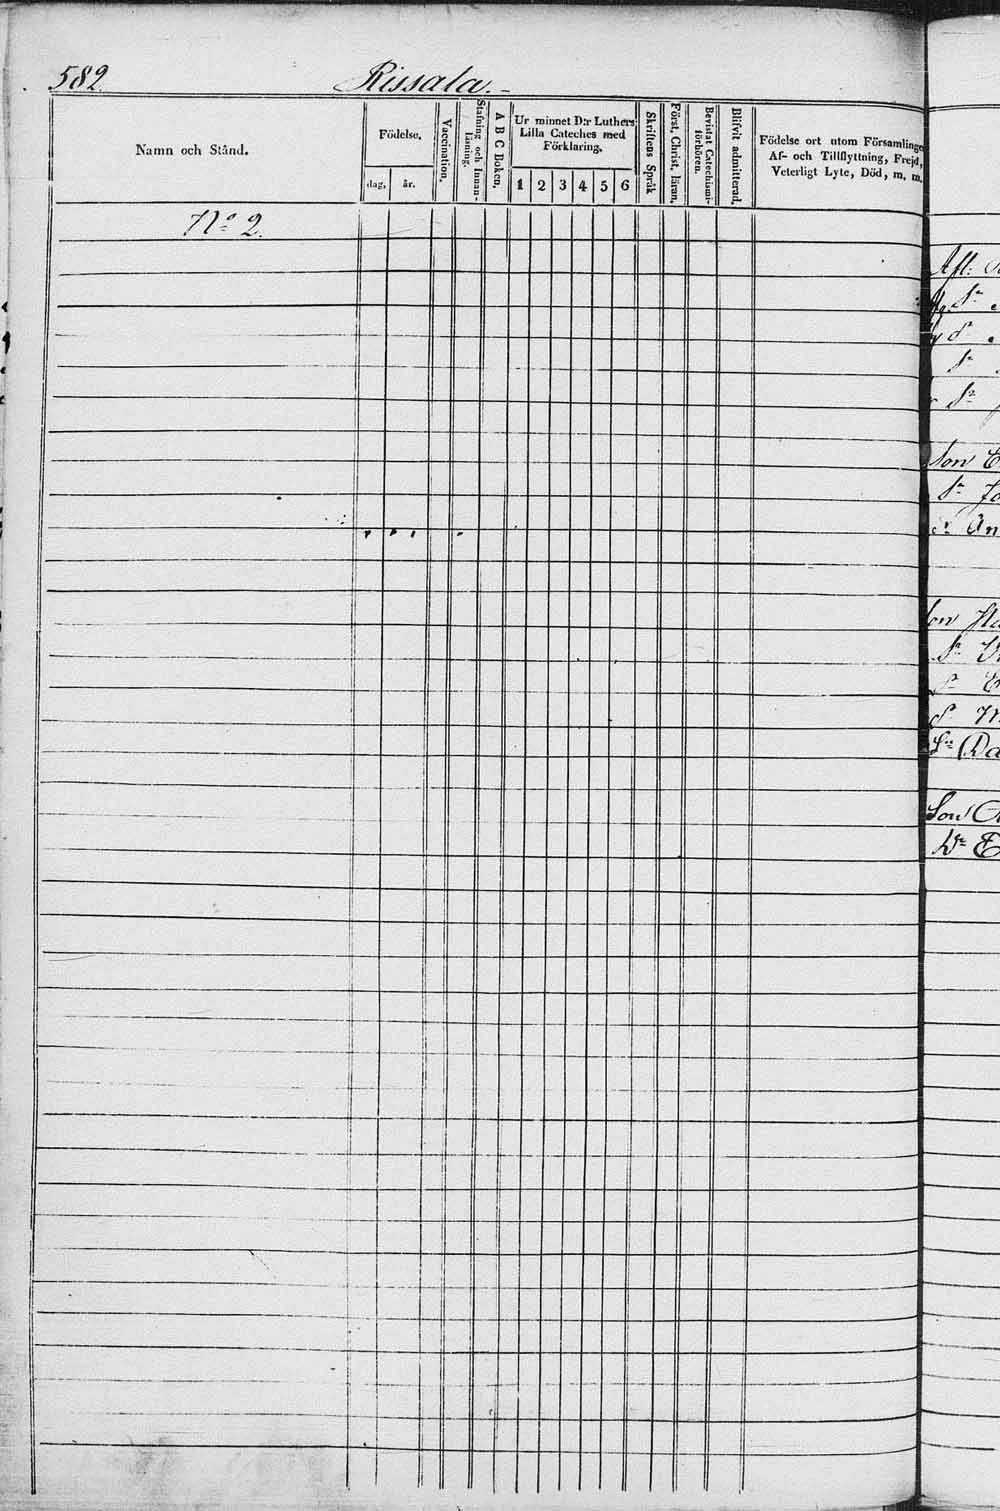 582
Rissala.
Namn och Stånd.
Födelse.
dag. år.
Vaccination.
Stafning och Innan-
läsning.
A B C Boken.
Ur minnet D:r Luthers
Lilla Cateches med
Förklaring.
1 2 3 4 5 6
Skriftens Språk
Först. Christ. läran.
Bevistat Catechismi-
förhören.
Blifvit admitterad.
Födelse ort utom Församlinge
Af- och Tillflyttning, Frejd,
Veterligt Lyte, Död, m. m.
No 2.
Afl:
Son
An
Son
Da
Son